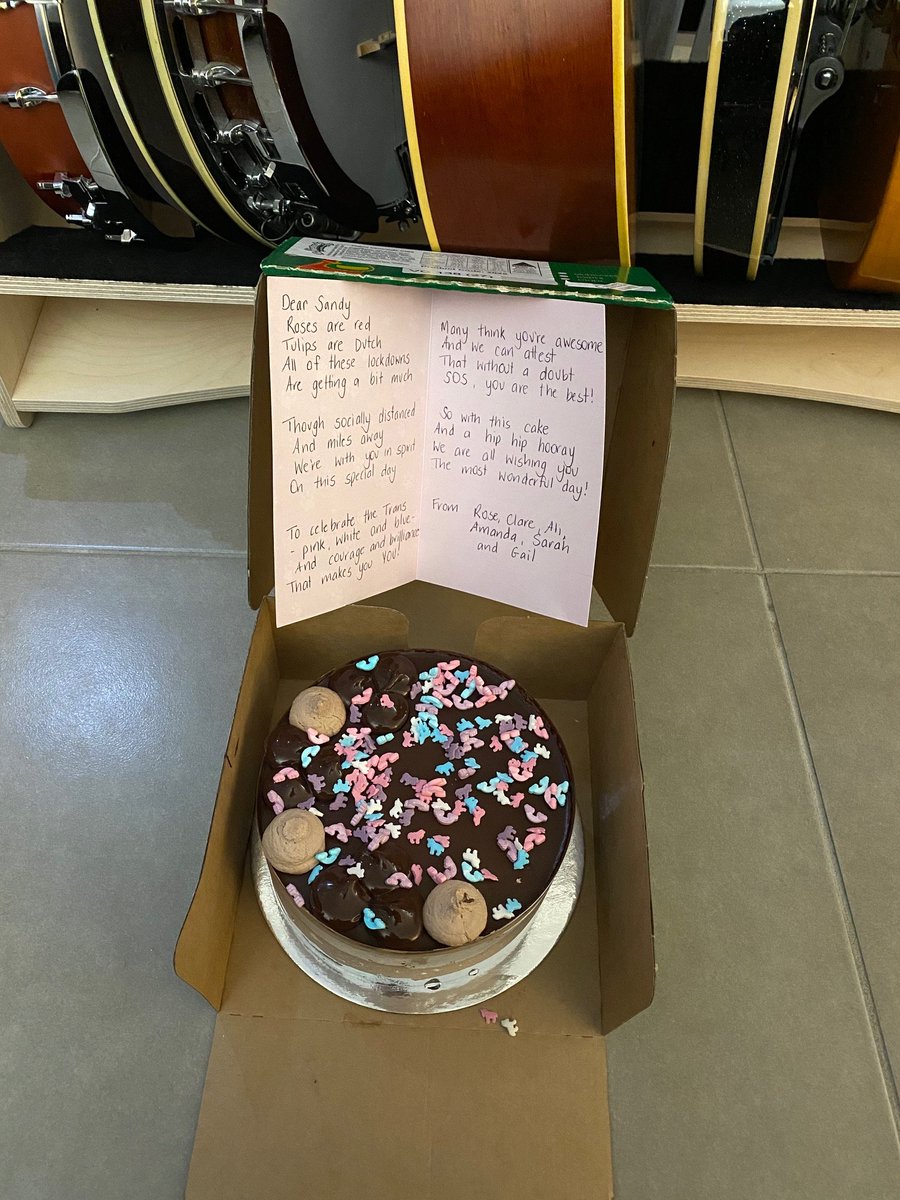 Dear Sandy
Roses are red
Tulips are Dutch
All of these lockdowns
Are getting a bit much
Though socially distanced
And miles away
We're with you in spirit
On this special day
To celebrate the Trans
- pink, white and blue -
And courage and brilliance
That makes you YOU!
Many think you're awesome
And we can attest
That without a doubt
SOS, you are the best!
So with this cake
And a hip hip hooray
We are all wishing you
The most wonderful day!
From Rose, Clare, Ali,
Amanda, Sarah
and Gail